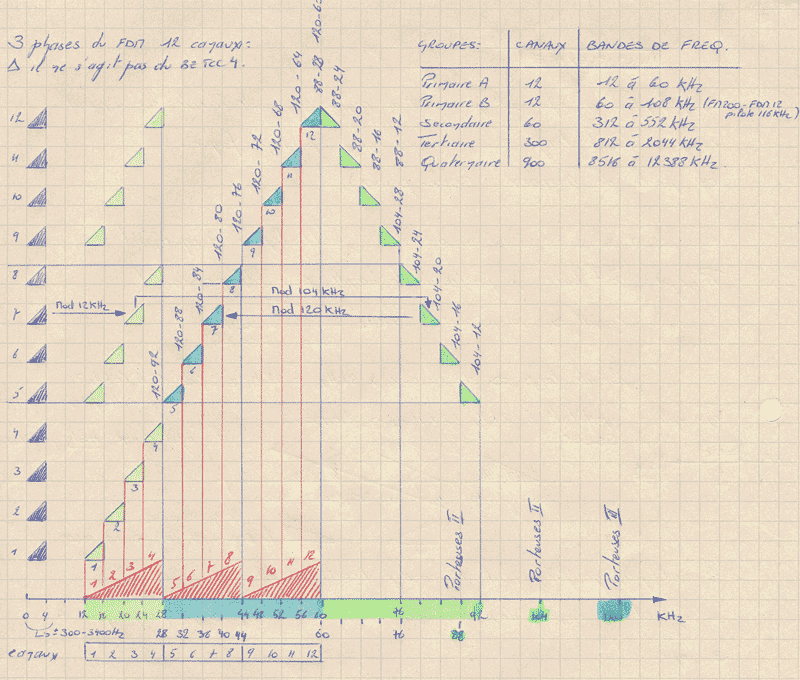 3 phases du FDM 12 canaux:
Δ il ne s'agit pas du BETCC4.
GROUPES: CANAUX BANDES DE FREQ.
Primaire A 12 12 à 60 KHz
Primaire B 12 60 à 108 KHz (FM200-FDM12 pilote 116KHz)
Secondaire 60 312 à 552 KHz
Tertiaire 300 812 à 2044 KHz
Quaternaire 900 8516 à 12388 KHz.
120-64
88-28
88-24
12
12
120-68
88-20
11
11
120-72
88-16
10
10
120-76
88-12
9
9
120-80
104-28
8
8
120-84
104-24
Mod 104 KHz
7
Mod 12KHz
7
Mod 120 KHz
104-20
120-88
6
6
104-16
120-92
5
5
104-12
4
4
3
3
2
2
1
1
1 2 3 4 5 6 7 8 9 10 11 12
Porteuses II
Porteuses II
Porteuses III
0 4 12 20 24 28 44 48 52 56 60 76 92 KHz
300-3400Hz 28 32 36 40 44 60 76 88
canaux 1 2 3 4 5 6 7 8 9 10 11 12